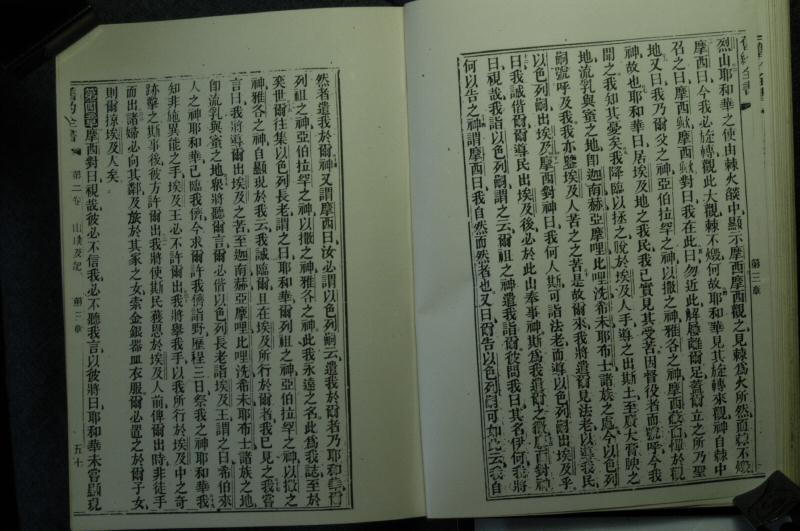 舊約全書
第三章
烈山耶和華之使由棘火燄中顯示摩西摩西觀之見棘爲火所然而棘不燬
摩西曰今我必旋轉觀此大觀棘不燬何故耶和華見其旋轉來觀神自棘中
召之曰摩西歟摩西歟對曰我在此曰勿近此解屨離爾足蓋爾立之所乃聖
地又曰我乃爾父之神亞伯拉罕之神以撒之神雅各之神摩西蔽面懼於觀
神故也耶和華曰居埃及地之我民我已實見其受苦因督役者而號呼今我
聞之我知其憂矣我降臨以拯之脫於埃及人手導之出斯土至廣大膏腴之
地流乳與蜜之地卽迦南赫亞摩哩比哩洗希未耶布士諸族之處今以色列
嗣號呼及我我亦鑒埃及人苦之之苦是故爾來我將遣爾見法老以導我民
以色列嗣出埃及摩西對神曰我何人斯可詣法老而導以色列嗣出埃及乎
曰我誠偕爾爾導民出埃及後必於此山奉事神斯爲我遣爾之徵摩西對神
曰視哉我詣以色列嗣謂之云爾祖之神遣我詣爾彼問我曰其名伊何我將
何以告之神謂摩西曰我自然而然者也又曰爾告以色列嗣可如此云我自
然者遣我於爾神又謂摩西曰汝必謂以色列嗣云遣我於爾者乃耶和華爾
列祖之神亞伯拉罕之神以撒之神雅各之神此我永遠之名此爲我誌至於
奕世爾往集以色列長老謂之曰耶和華爾列祖之神亞伯拉罕之神以撒之
神雅各之神自顯現於我云我誠臨爾且在埃及所行於爾者我已見之我嘗
言曰我將導爾出埃及之苦至迦南赫亞摩哩比哩洗希未耶布士諸族之地
卽流乳與蜜之地衆將聽爾言爾必偕以色列長老詣埃及王謂之曰希伯來
人之神耶和華已臨我儕今求爾許我儕詣野歷程三日祭我之神耶和華我
知非施異能之手埃及王必不許爾出我將舉我手以我所行於埃及中之奇
跡擊之斯事後彼方許爾出我將使斯民獲恩於埃及人前俾爾出時非徒手
而出諸婦必向其鄰及旅於其家之女索金銀器皿衣服爾必置之於爾子女
則爾掠埃及人矣
第四章摩西對曰視哉彼必不信我必不聽我言以彼將曰耶和華未嘗顯現
舊約全書 第二卷 出埃及記 第三章 五十